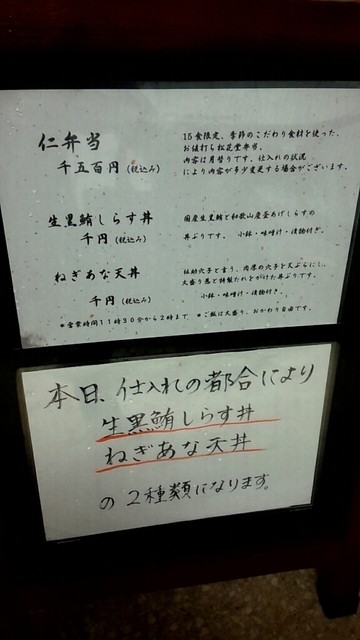 仁弁当
千五百円(税込み)
15食限定、季節のこだわり食材を使った、
お値打ち松花堂弁当。
内容は月替りです。仕入れの状況
により内容が多少変更する場合がございます。
生黒鮪しらす丼
千円(税込み)
国産生黒鮪と和歌山産釜あげしらすの
丼ぶりです。 小鉢・味噌汁・漬物付き。
ねぎあな天丼
千円(税込み)
伝助穴子と言う、肉厚の穴子を天ぷらにし、
大盛り葱と特製たれをかけた丼ぶりです。
小鉢・味噌汁・漬物付き。
*営業時間11時30分から2時まで *ご飯は大盛り、おかわり自由です。
本日、仕入れの都合により
生黒鮪しらす丼
ねぎあな天丼
の2種類になります。